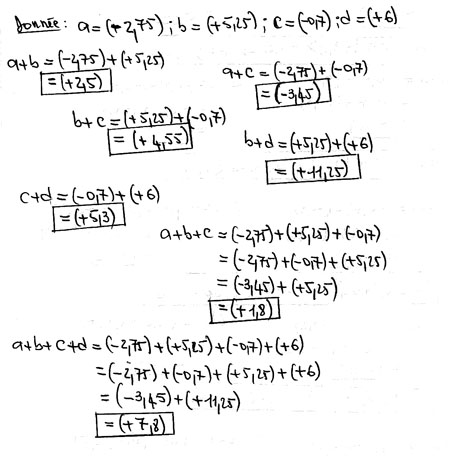 Donnée: a=(-2,75); b=(+5,25); c=(-0,7); d=(+6)
a+b=(-2,75)+(+5,25)
=(+2,5)
a+c=(-2,75)+(-0,7)
=(-3,45)
b+c=(+5,25)+(-0,7)
=(+4,55)
b+d=(+5,25)+(+6)
=(+11,25)
c+d=(-0,7)+(+6)
=(+5,3)
a+b+c=(-2,75)+(+5,25)+(-0,7)
=(-2,75)+(-0,7)+(+5,25)
=(-3,45)+(+5,25)
=(+1,8)
a+b+c+d=(-2,75)+(+5,25)+(-0,7)+(+6)
=(-2,75)+(-0,7)+(+5,25)+(+6)
=(-3,45)+(+11,25)
=(+7,8)